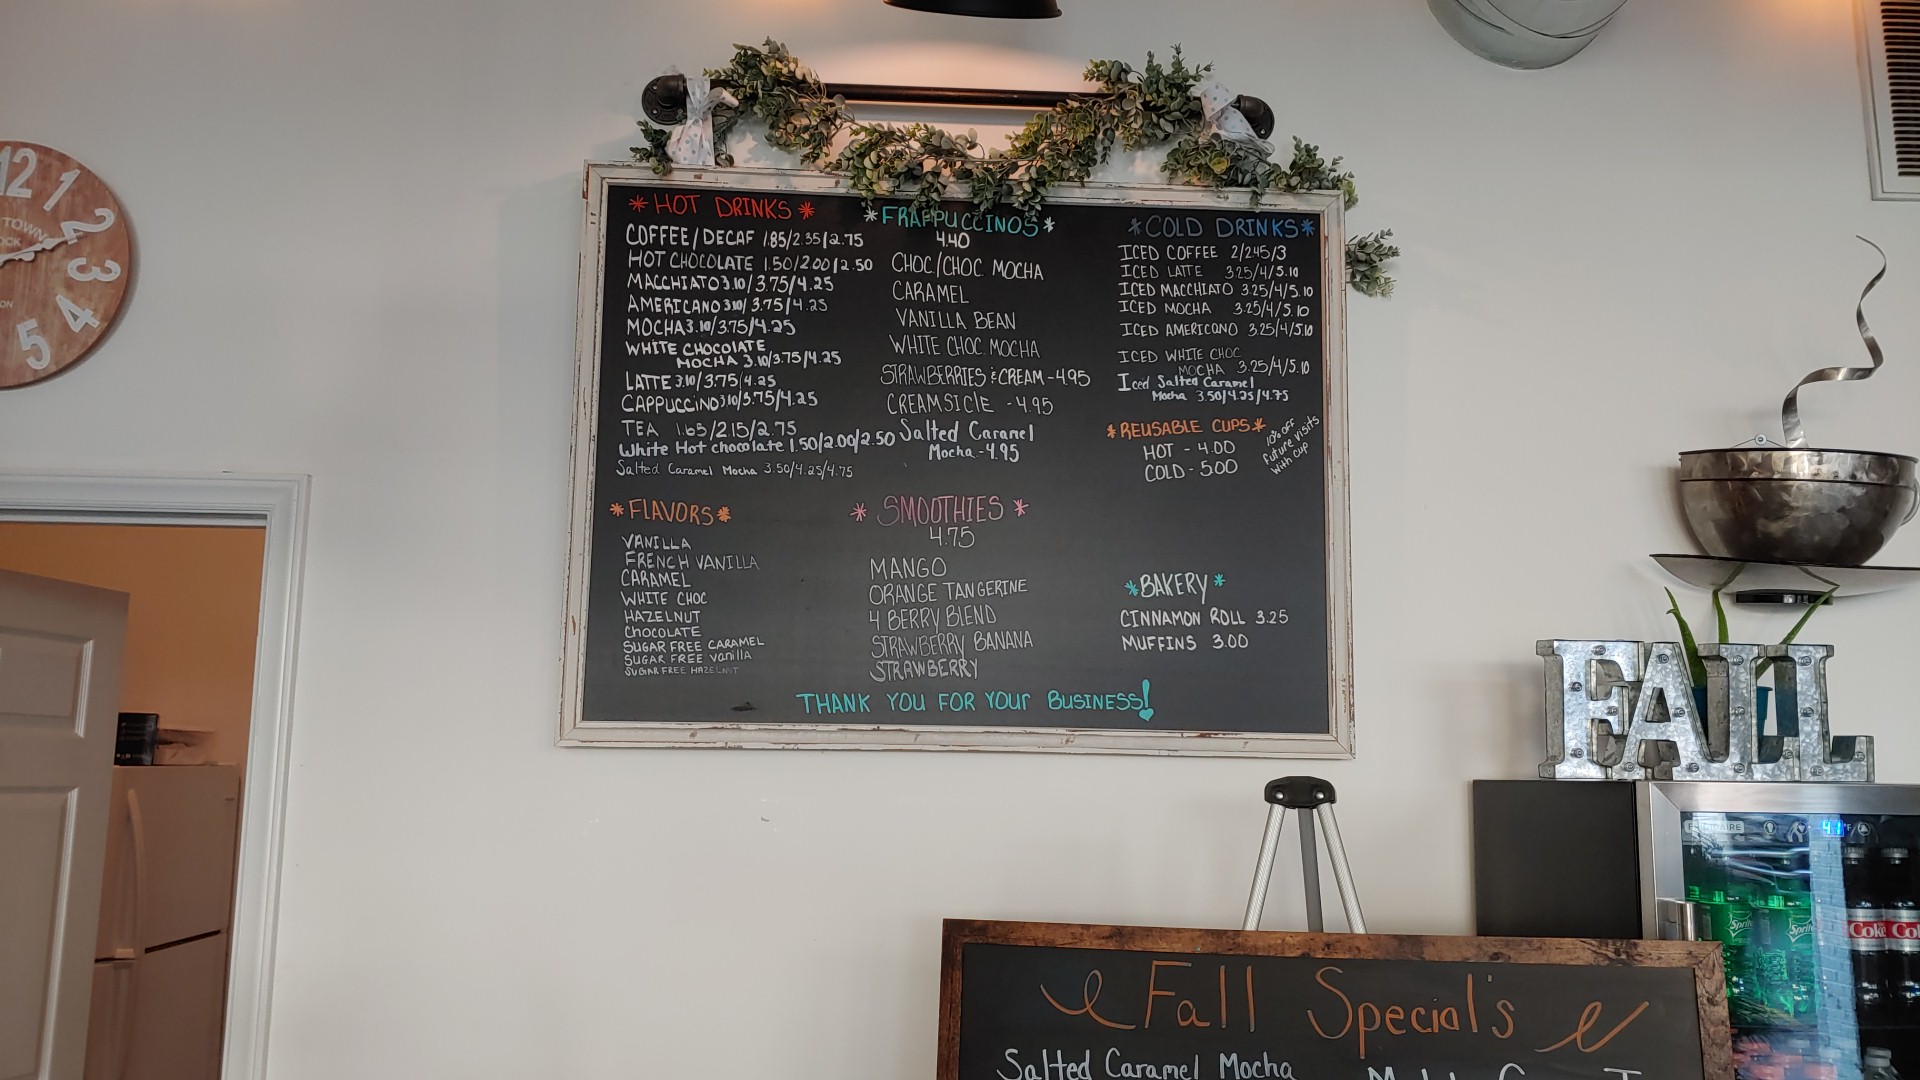 12
1
2
3
4
5
TOWN
*HOT DRINKS*
COFFEE/DECAF 1.85/2.35/2.75
HOT CHOCOLATE 1.50/2.00/2.50
MACCHIATO 3.10/3.75/4.25
AMERICANO 3.10/3.75/4.25
MOCHA 3.10/3.75/4.25
WHITE CHOCOLATE
MOCHA 3.10/3.75/4.25
LATTE 3.10/3.75/4.25
CAPPUCCINO 3.10/3.75/4.25
TEA 1.65/2.15/2.75
White Hot chocolate 1.50/2.00/2.50
Salted Caramel Mocha 3.50/4.25/4.75
*FLAVORS*
VANILLA
FRENCH VANILLA
CARAMEL
WHITE CHOC
HAZELNUT
CHOCOLATE
SUGAR FREE CARAMEL
SUGAR FREE Vanilla
SUGAR FREE HAZELNUT
*FRAPPUCCINOS*
4.40
CHOC/CHOC MOCHA
CARAMEL
VANILLA BEAN
WHITE CHOC MOCHA
STRAWBERRIES & CREAM - 4.95
CREAMSICLE - 4.95
Salted Caramel
Mocha - 4.95
* SMOOTHIES *
4.75
MANGO
ORANGE TANGERINE
4 BERRY BLEND
STRAWBERRY BANANA
STRAWBERRY
*COLD DRINKS*
ICED COFFEE 2/2.45/3
ICED LATTE 3.25/4/5.10
ICED MACCHIATO 3.25/4/5.10
ICED MOCHA 3.25/4/5.10
ICED AMERICANO 3.25/4/5.10
ICED WHITE CHOC
MOCHA 3.25/4/5.10
Iced Salted Caramel
Mocha 3.50/4.25/4.75
*REUSABLE CUPS*
HOT - 4.00
COLD - 5.00
10% OFF
future visits
with cup
*BAKERY*
CINNAMON ROLL 3.25
MUFFINS 3.00
THANK YOU FOR YOUr BUSINESS!
FALL
FRIGIDAIRE
41°F
Sprite
Sprite
Coke
Co
Fall Special's
Salted Caramel Mocha